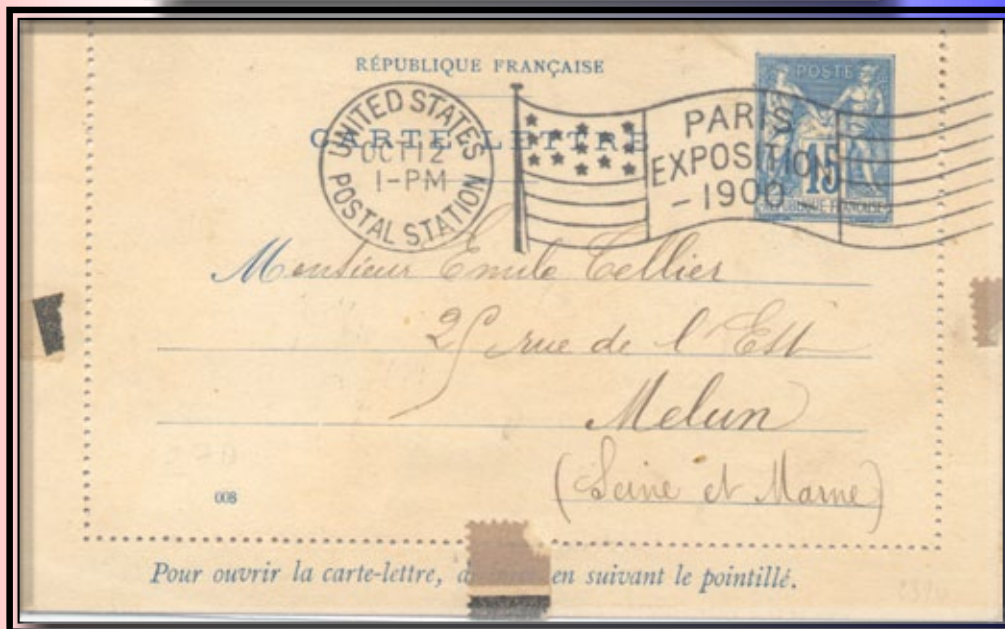 RÉPUBLIQUE FRANÇAISE
CARTE LETTRE
UNITED STATES
OCT 12
1-PM
POSTAL STATION
PARIS
EXPOSITION
-1900
POSTE
15
RÉPUBLIQUE FRANÇAISE
Monsieur Emile Tellier
25 rue de l'Est
Melun
(Seine et Marne)
008
Pour ouvrir la carte-lettre, en suivant le pointillé.